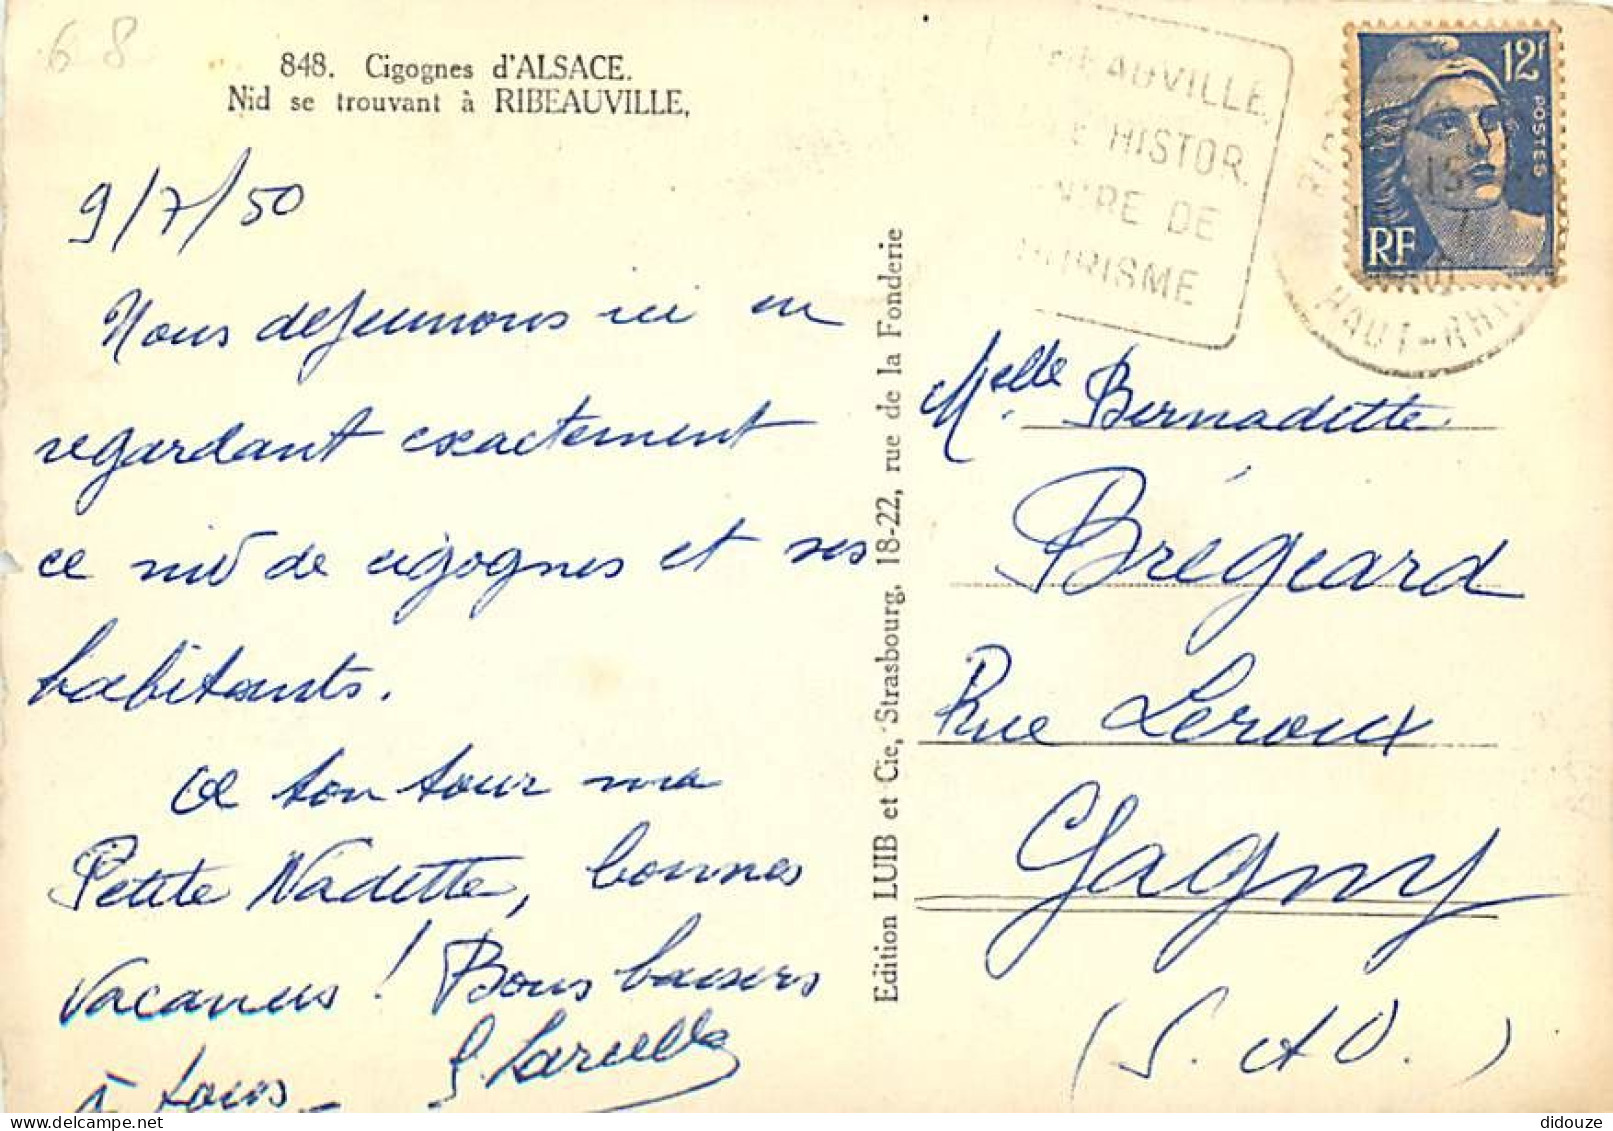 68
848. Cigognes d'ALSACE.
Nid se trouvant à RIBEAUVILLE,
9/7/50
Nous dejeunons ici en
regardant exactement
ce nid de cigognes et ses
habitants.
A ton tour ma
Petite Nadette, bonnes
vacances ! Bons baisers
à tous
Edition LUIB et Cie, Strasbourg, 18-22, rue de la Fonderie
EAUVILLE
HISTOR.
DE
RISME
12f
POSTES
RF
HAUT-RHIN
Melle Bernadette
Brégeard
Rue Leroux
Gagny
(S. et O.)
didouze